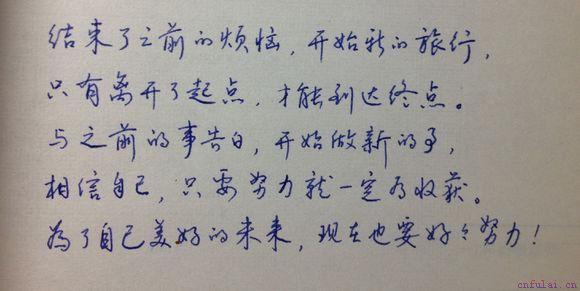 结束了之前的烦恼，开始新的旅行，
只有离开了起点，才能到达终点。
与之前的事告白，开始做新的事，
相信自己，只要努力就一定有收获。
为了自己美好的未来，现在也要好々努力！
cnfulai.cn